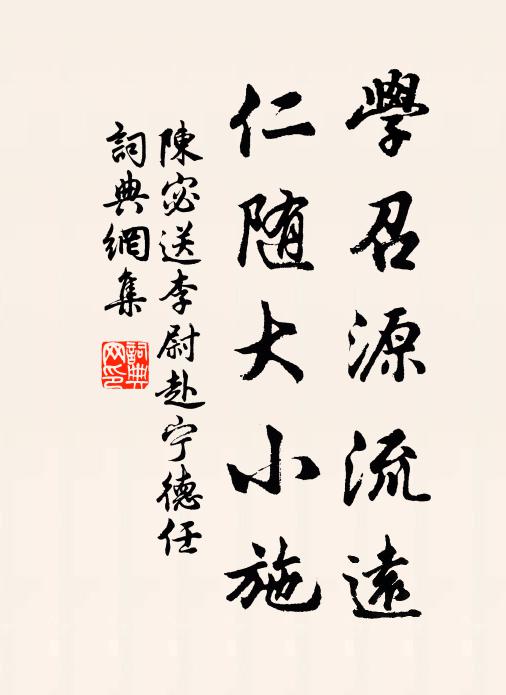 學召源流遠
仁随大小施
陳宓送李尉赴宁德任
詞典網集
詞典网印